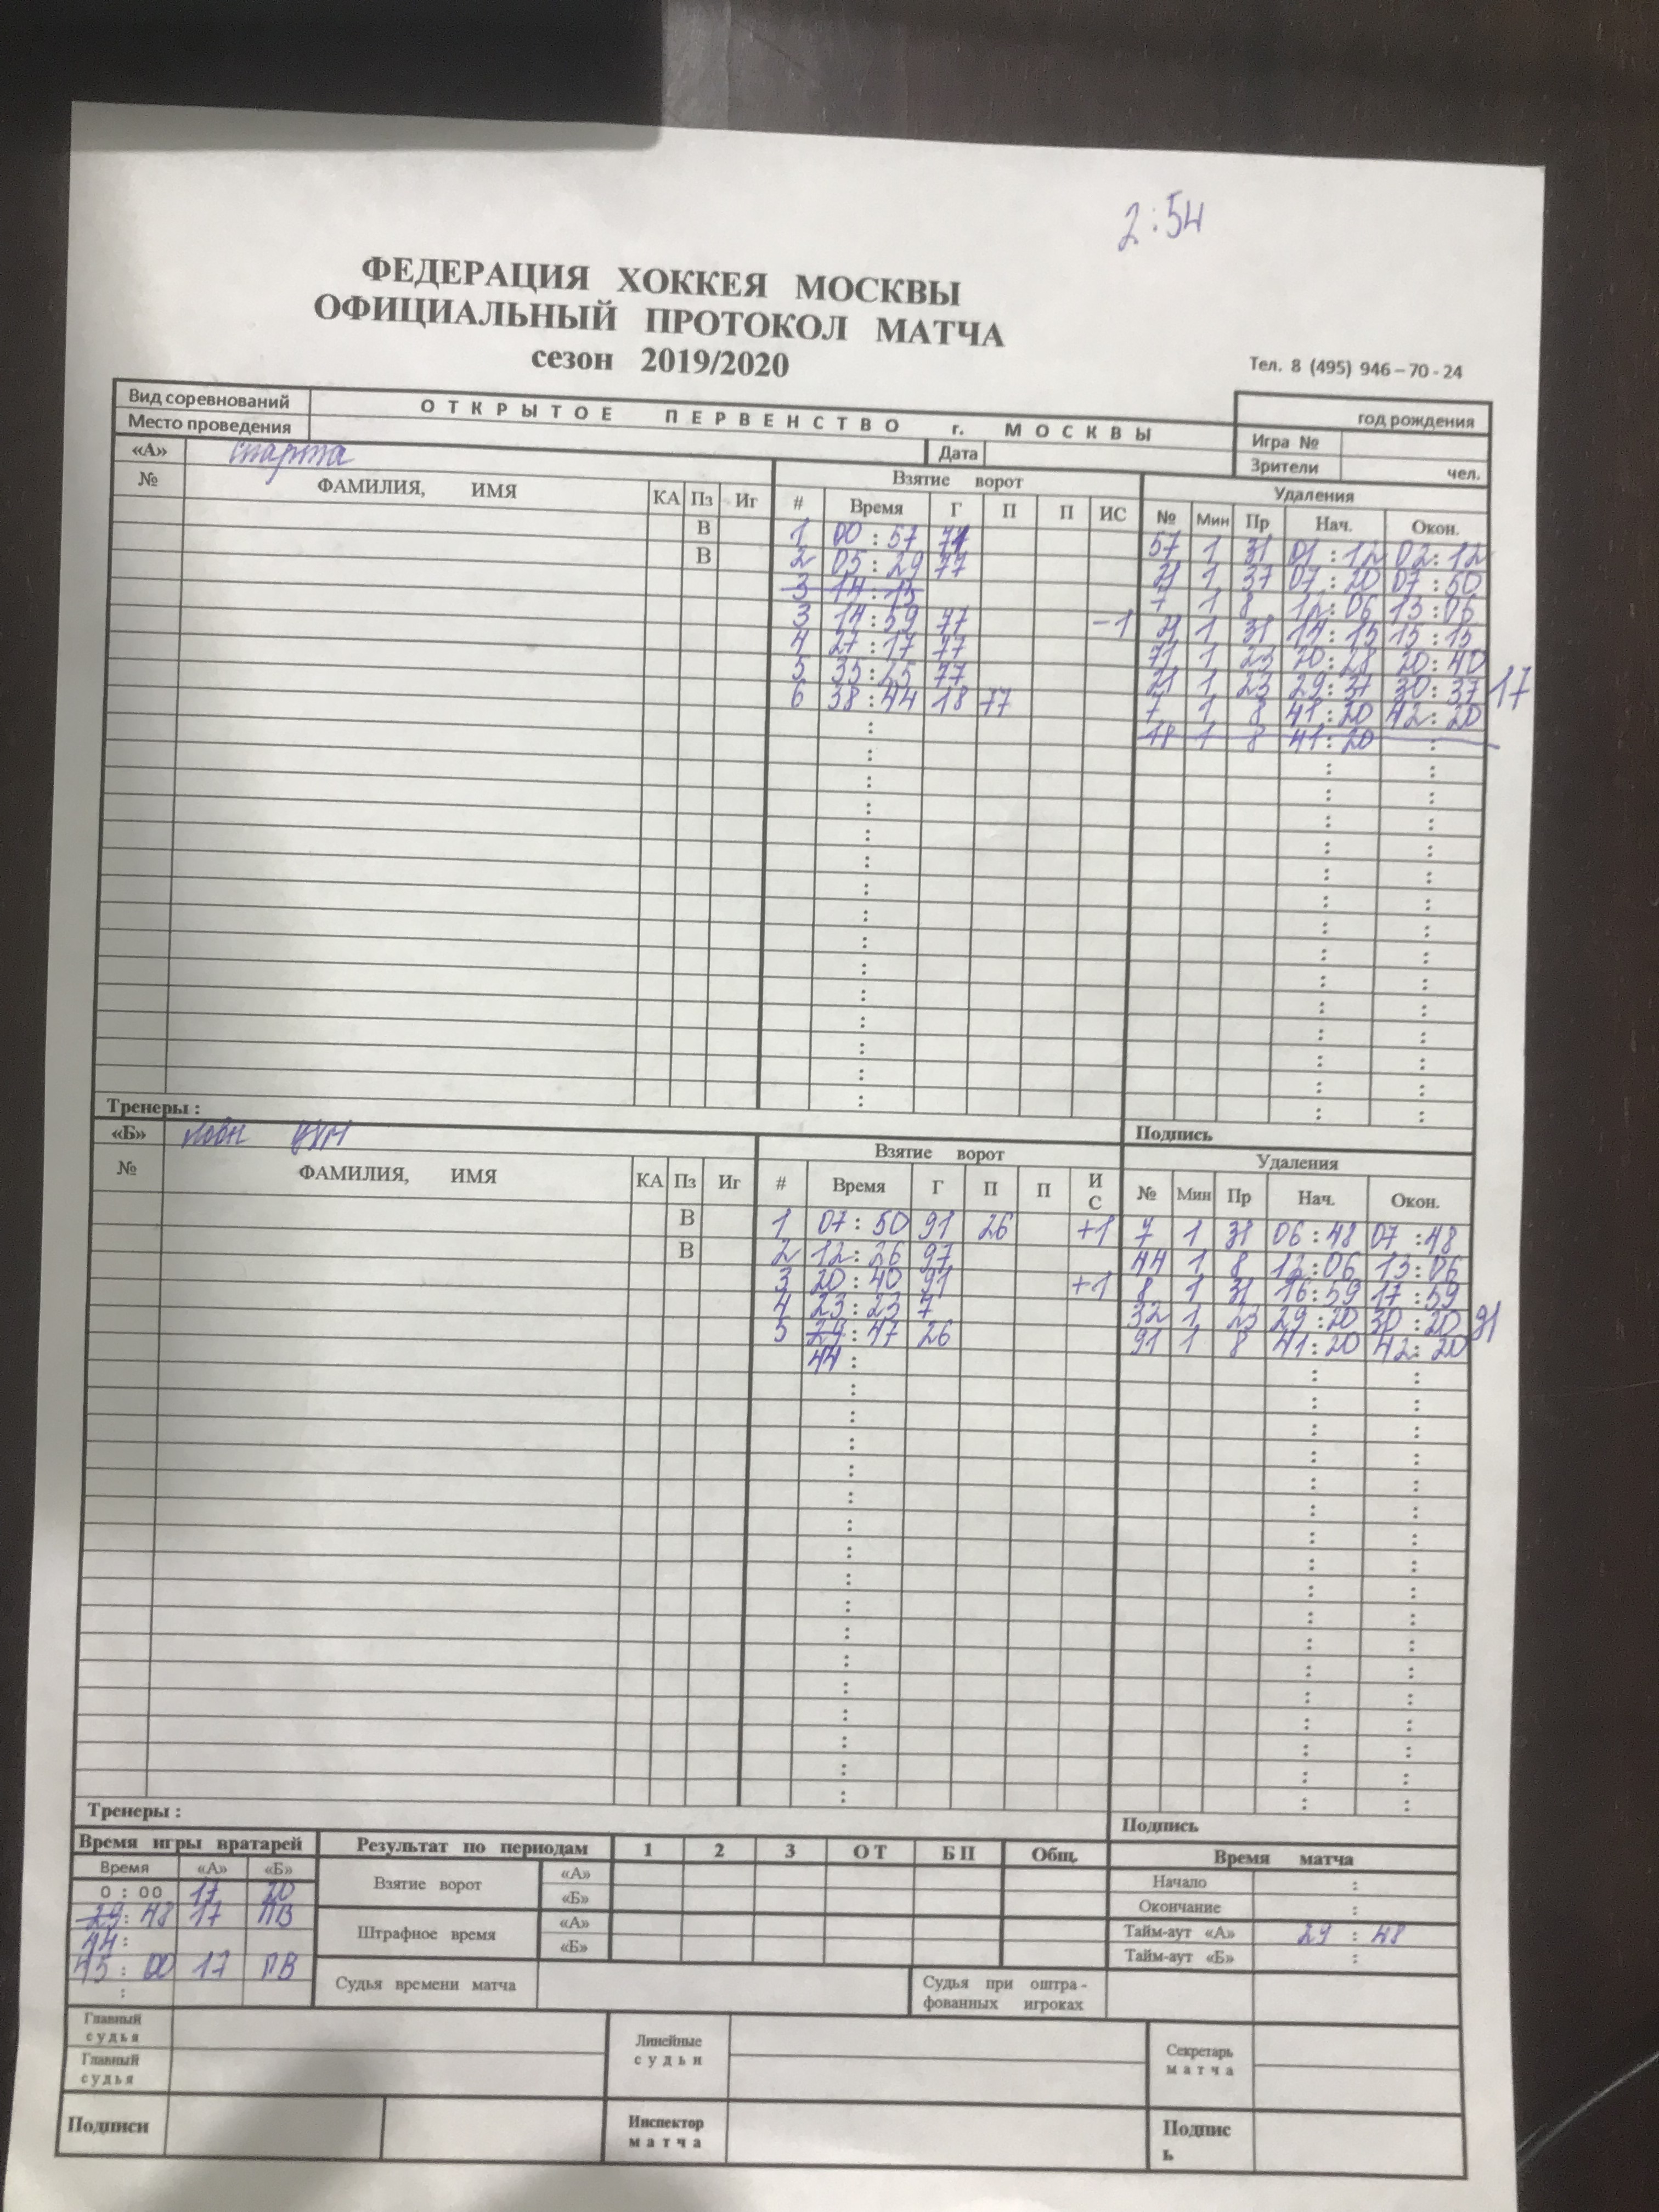 2:54
ФЕДЕРАЦИЯ ХОККЕЯ МОСКВЫ
ОФИЦИАЛЬНЫЙ ПРОТОКОЛ МАТЧА
сезон 2019/2020
Тел. 8 (495) 946 – 70 - 24
Вид соревнований ОТКРЫТОЕ ПЕРВЕНСТВО г. МОСКВЫ год рождения
Место проведения Дата Игра №
Зрители чел.
«А» Спарта Взятие ворот Удаления
№ ФАМИЛИЯ, ИМЯ КА Пз Иг # Время Г П П ИС № Мин Пр Нач. Окон.
В 1 00:57 57 1 31 01:12 02:12
В 2 05:29 77 1 37 07:20 07:50
3 14:15 7 1 8 12:06 13:06
3 14:59 77 -1 1 31 14:15 15:15
4 27:17 77 71 1 23 20:28 20:40
5 35:25 77 1 23 29:37 30:37 17
6 38:44 18 77 7 1 8 41:20 42:20
18 1 8 41:20
Тренеры :
Подпись
«Б» Взятие ворот Удаления
№ ФАМИЛИЯ, ИМЯ КА Пз Иг # Время Г П П ИС № Мин Пр Нач. Окон.
В 1 07:50 91 26 +1 7 1 31 06:48 07:48
В 2 12:26 97 44 1 8 12:06 13:06
3 20:40 91 +1 8 1 31 16:59 17:59
4 23:23 7 32 1 23 29:20 30:20 91
5 29:47 26 91 1 8 41:20 42:20
44:
Тренеры :
Подпись
Время игры вратарей Результат по периодам 1 2 3 ОТ БП Общ. Время матча
Время «А» «Б» Взятие ворот «А» Начало :
0 : 00 17 20 «Б» Окончание :
29:48 17 ПВ Штрафное время «А» Тайм-аут «А» 29 : 48
44: «Б» Тайм-аут «Б» :
45:00 17 ПВ Судья времени матча Судья при оштра-
фованных игроках
Главный судья Линейные судьи Секретарь матча
Главный судья
Подписи Инспектор матча Подпись